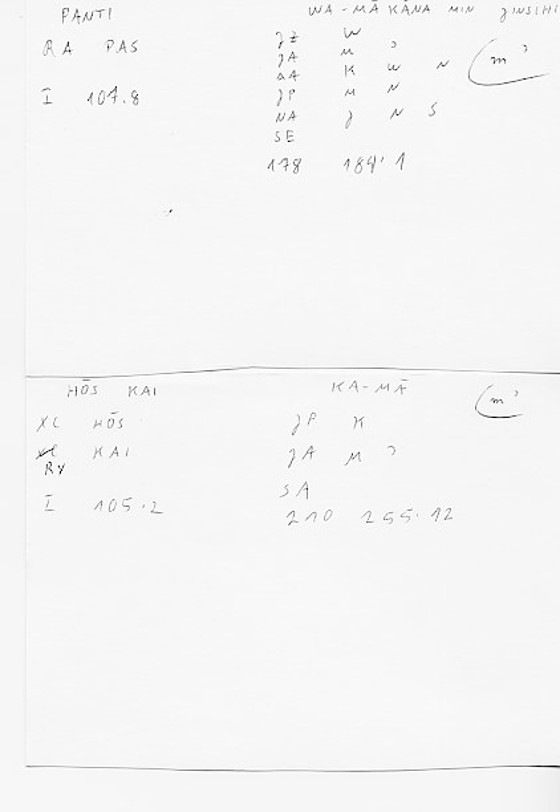 PANTI WA-MĀ KĀNA MIN JINSIHI
JZ W
RA PAS JA M ɔ
aA K W N (m ɔ
I 107.8 JP M N
NA J N S
SE
178 189.1
HŌS KAI KA-MĀ (m ɔ
XC HŌS JP K
RY KAI JA M ɔ
SA
I 105.2 210 255.12